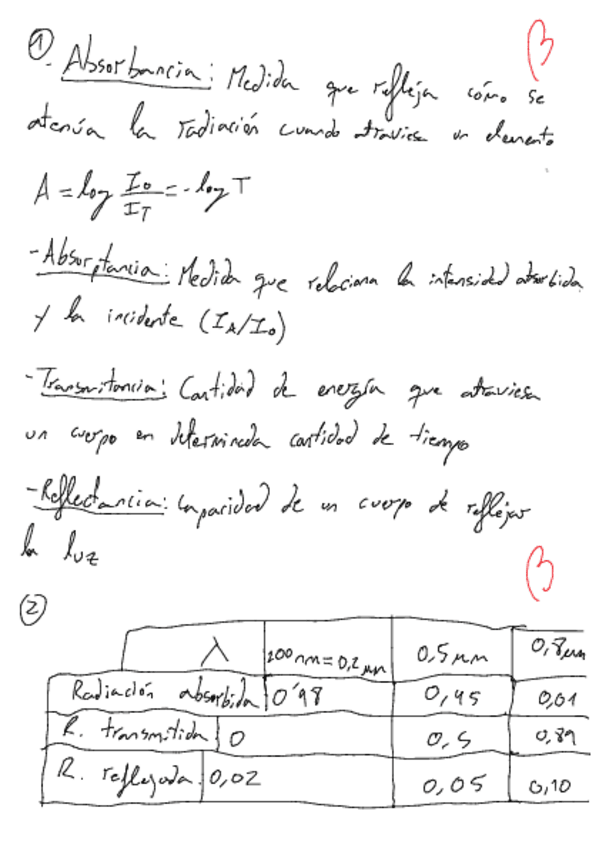 ①
- Absorbancia: Medida que refleja cómo se
atenúa la radiación cuando atraviesa un elemento
A = log I₀/I_T = - log T
- Absorptancia: Medida que relaciona la intensidad absorbida
y la incidente (I_A/I₀)
- Transmitancia: Cantidad de energía que atraviesa
un cuerpo en determinada cantidad de tiempo
- Reflectancia: Capacidad de un cuerpo de reflejar
la luz
②
λ 200 nm = 0,2 μm 0,5 μm 0,8 μm
Radiación absorbida 0'98 0,45 0,01
R. transmitida 0 0,5 0,89
R. reflejada 0,02 0,05 0,10